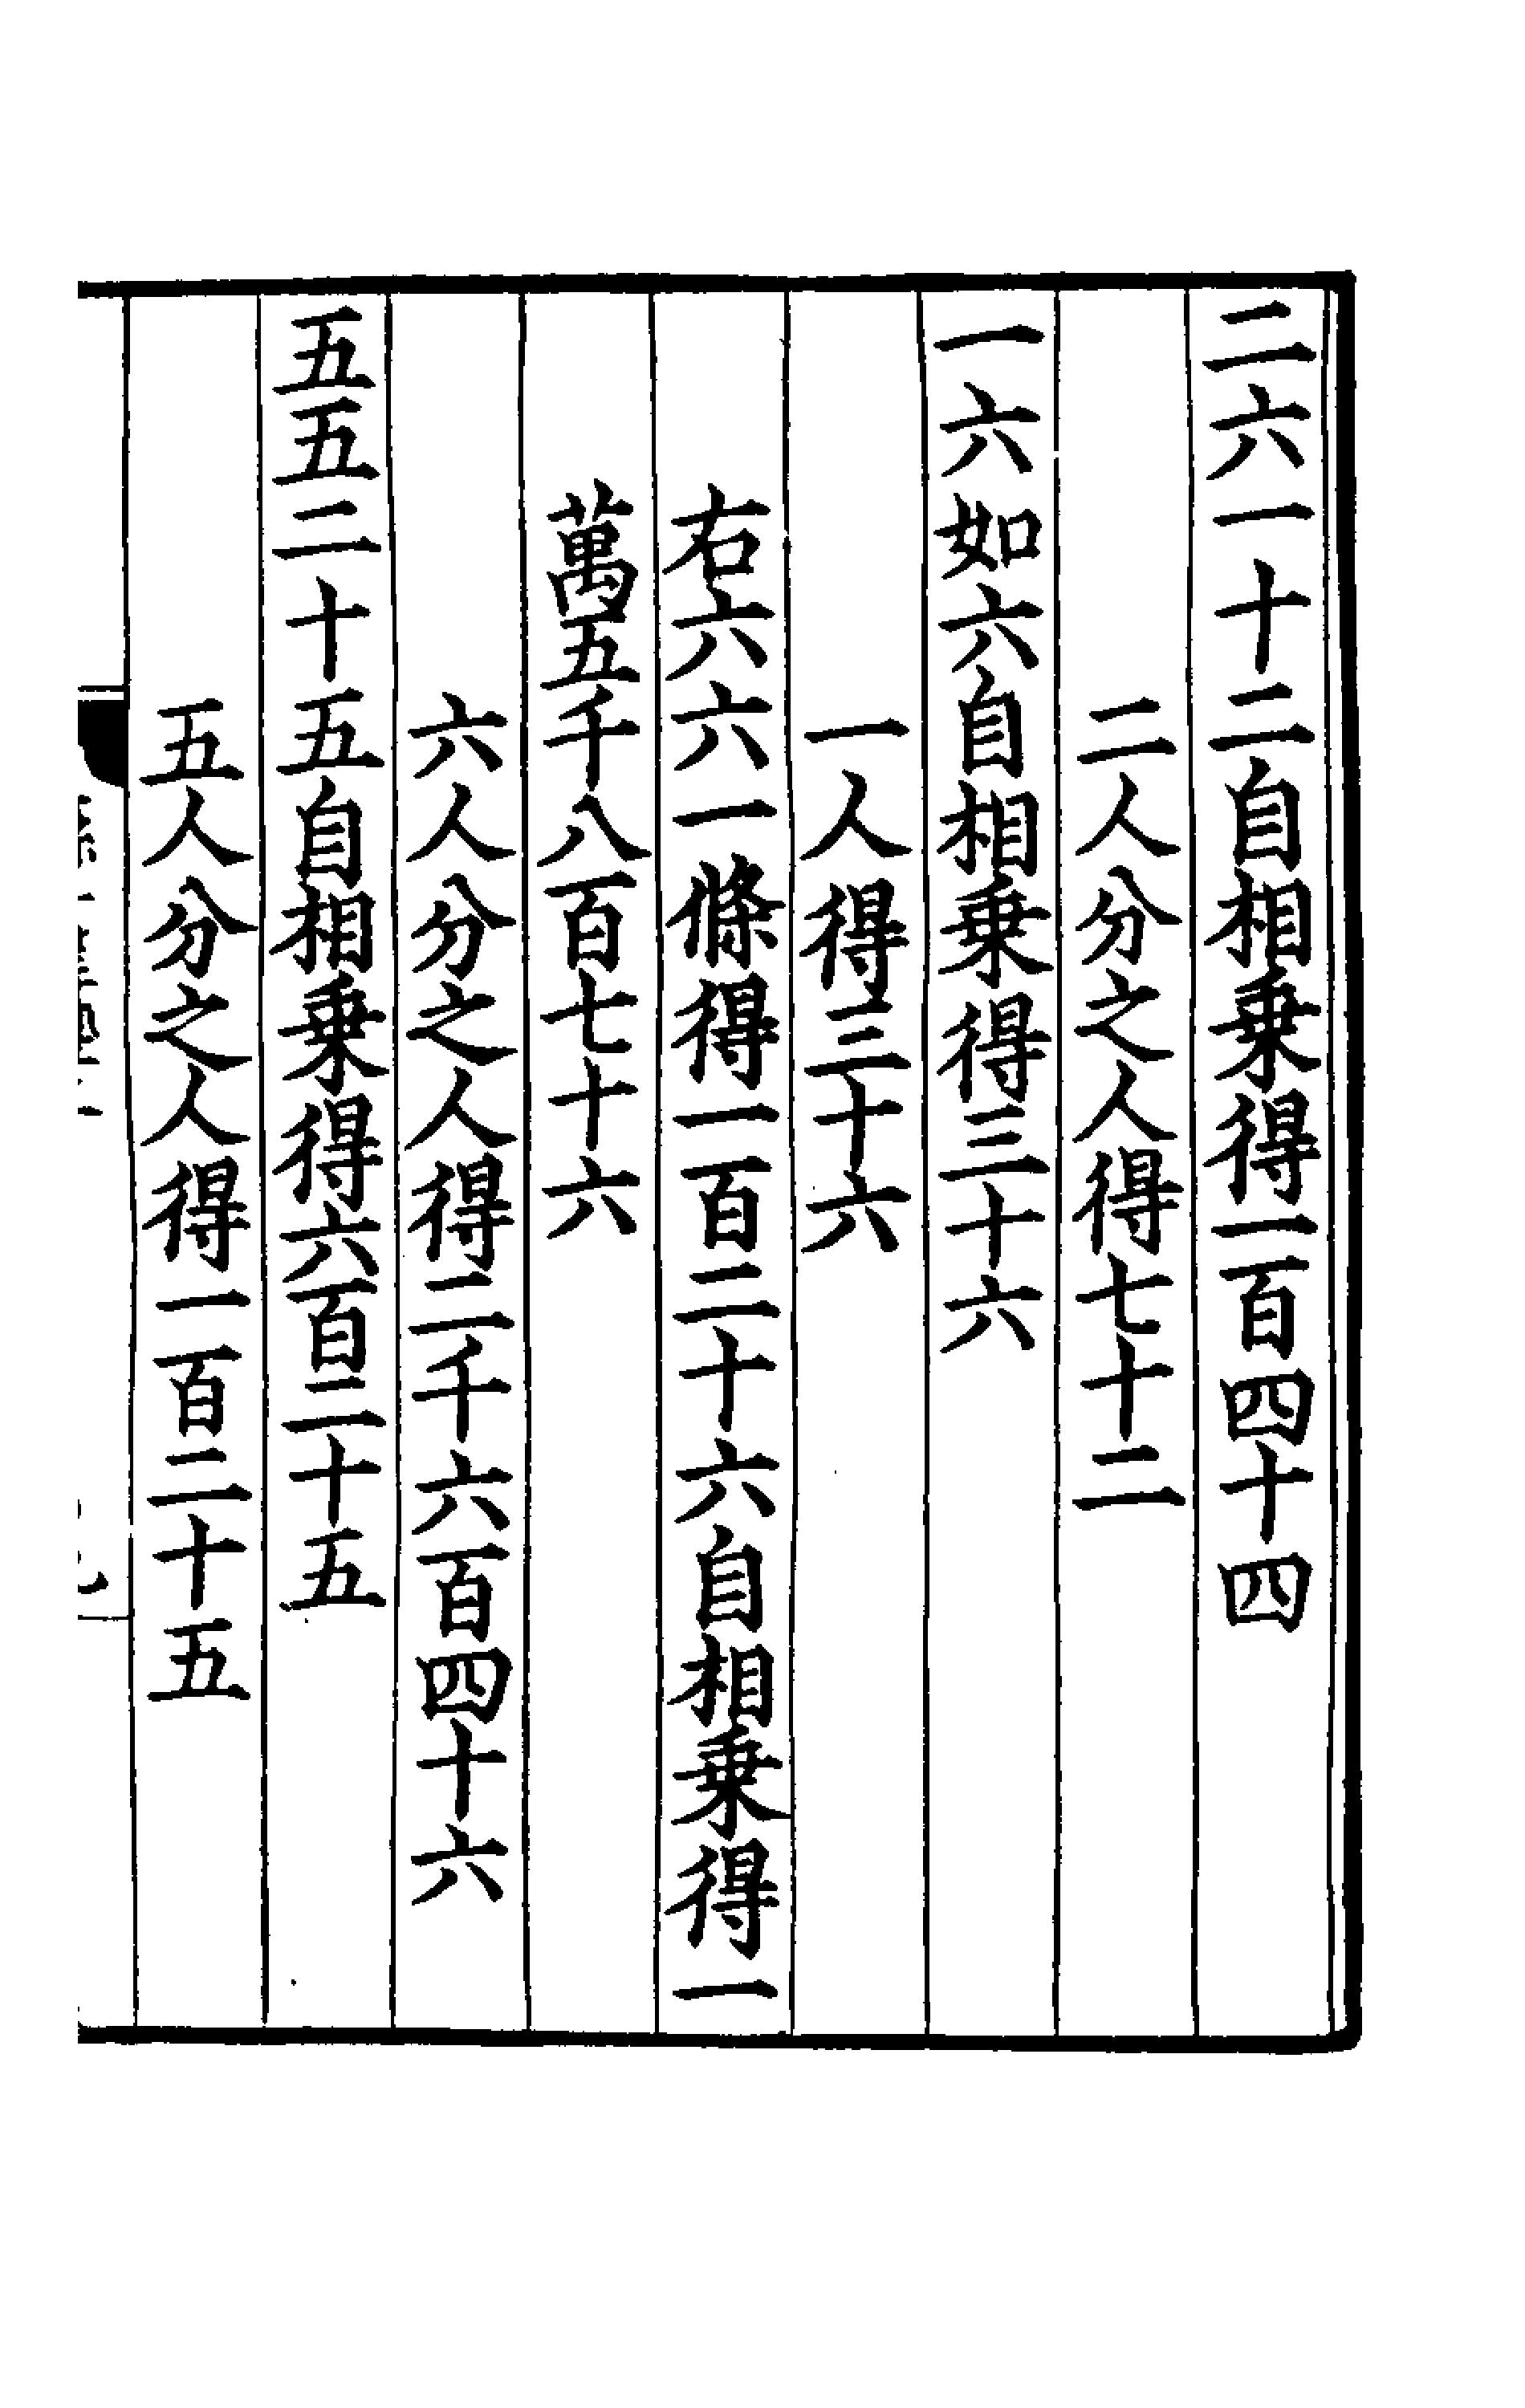 二六一十二自相乗得一百四十四
二人分之人得七十二
一六如六自相乗得三十六
一人得三十六
右六六一條得一百二十六自相乗得一
萬五千八百七十六
六人分之人得二千六百四十六
五五二十五自相乗得六百二十五
五人分之人得一百二十五